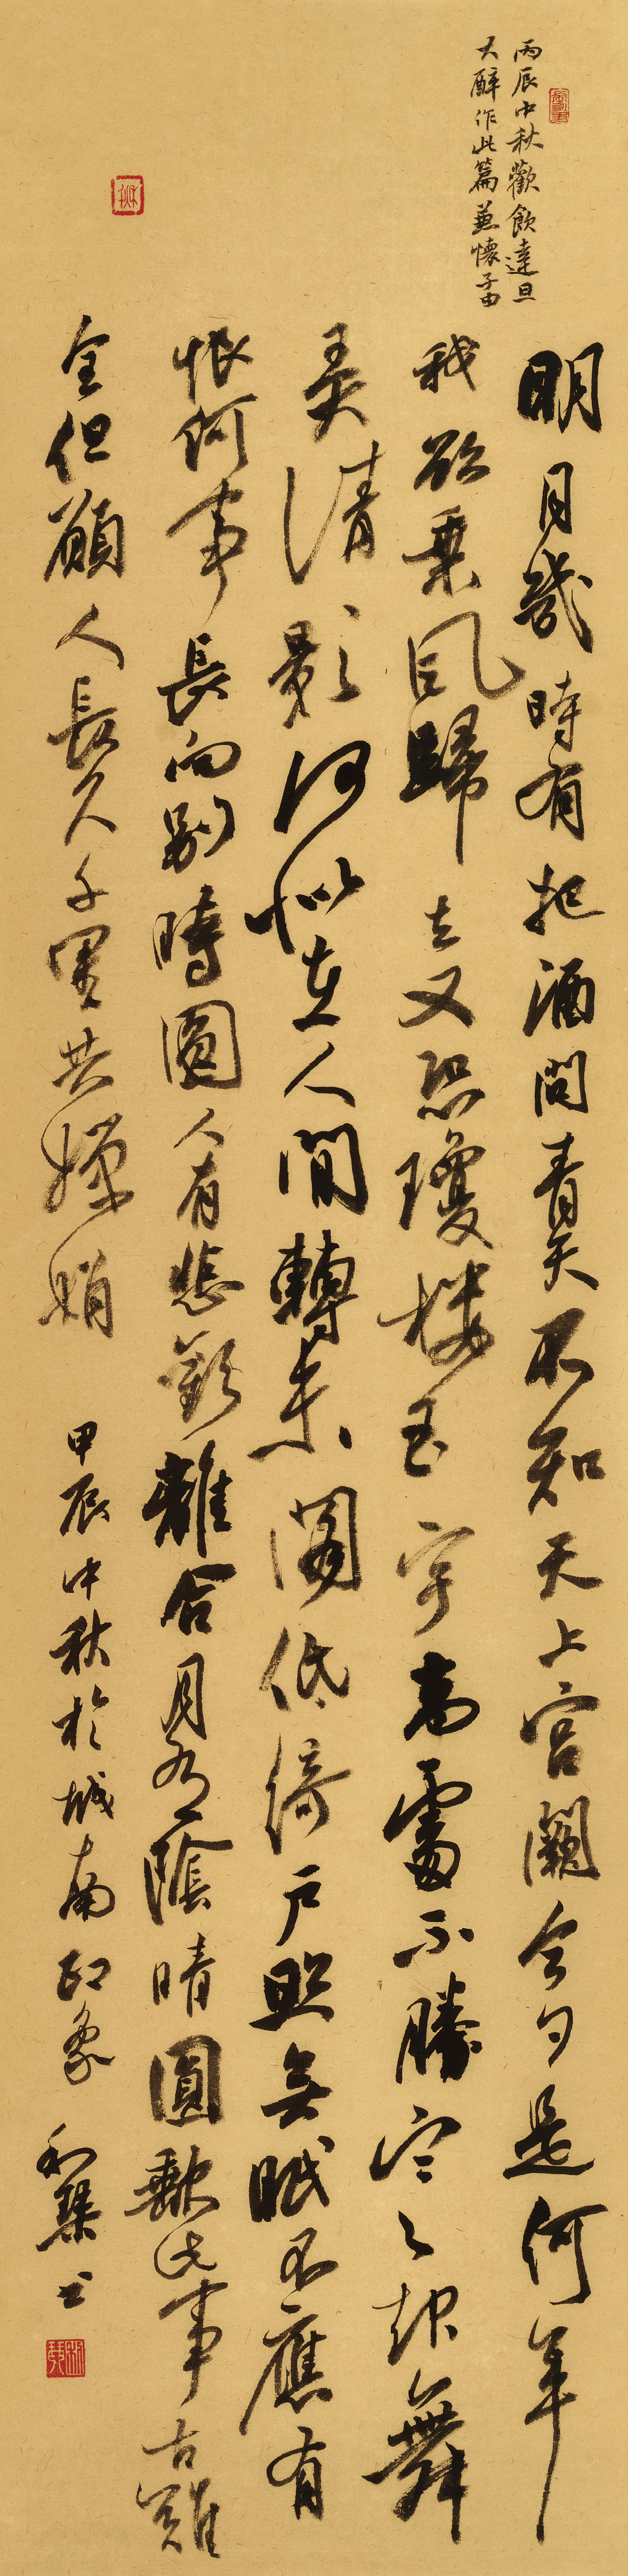 丙辰中秋歡飲達旦
大醉作此篇兼懷子由
明月幾時有把酒問青天不知天上宮闕今夕是何年
我欲乗風歸去又恐瓊樓玉宇高處不勝寒起舞
弄清影何似在人間轉朱閣低綺戶照無眠不應有
恨何事長向別時圓人有悲歡離合月有陰晴圓缺此事古難
全但願人長久千里共嬋娟
甲辰中秋於城南印象 书